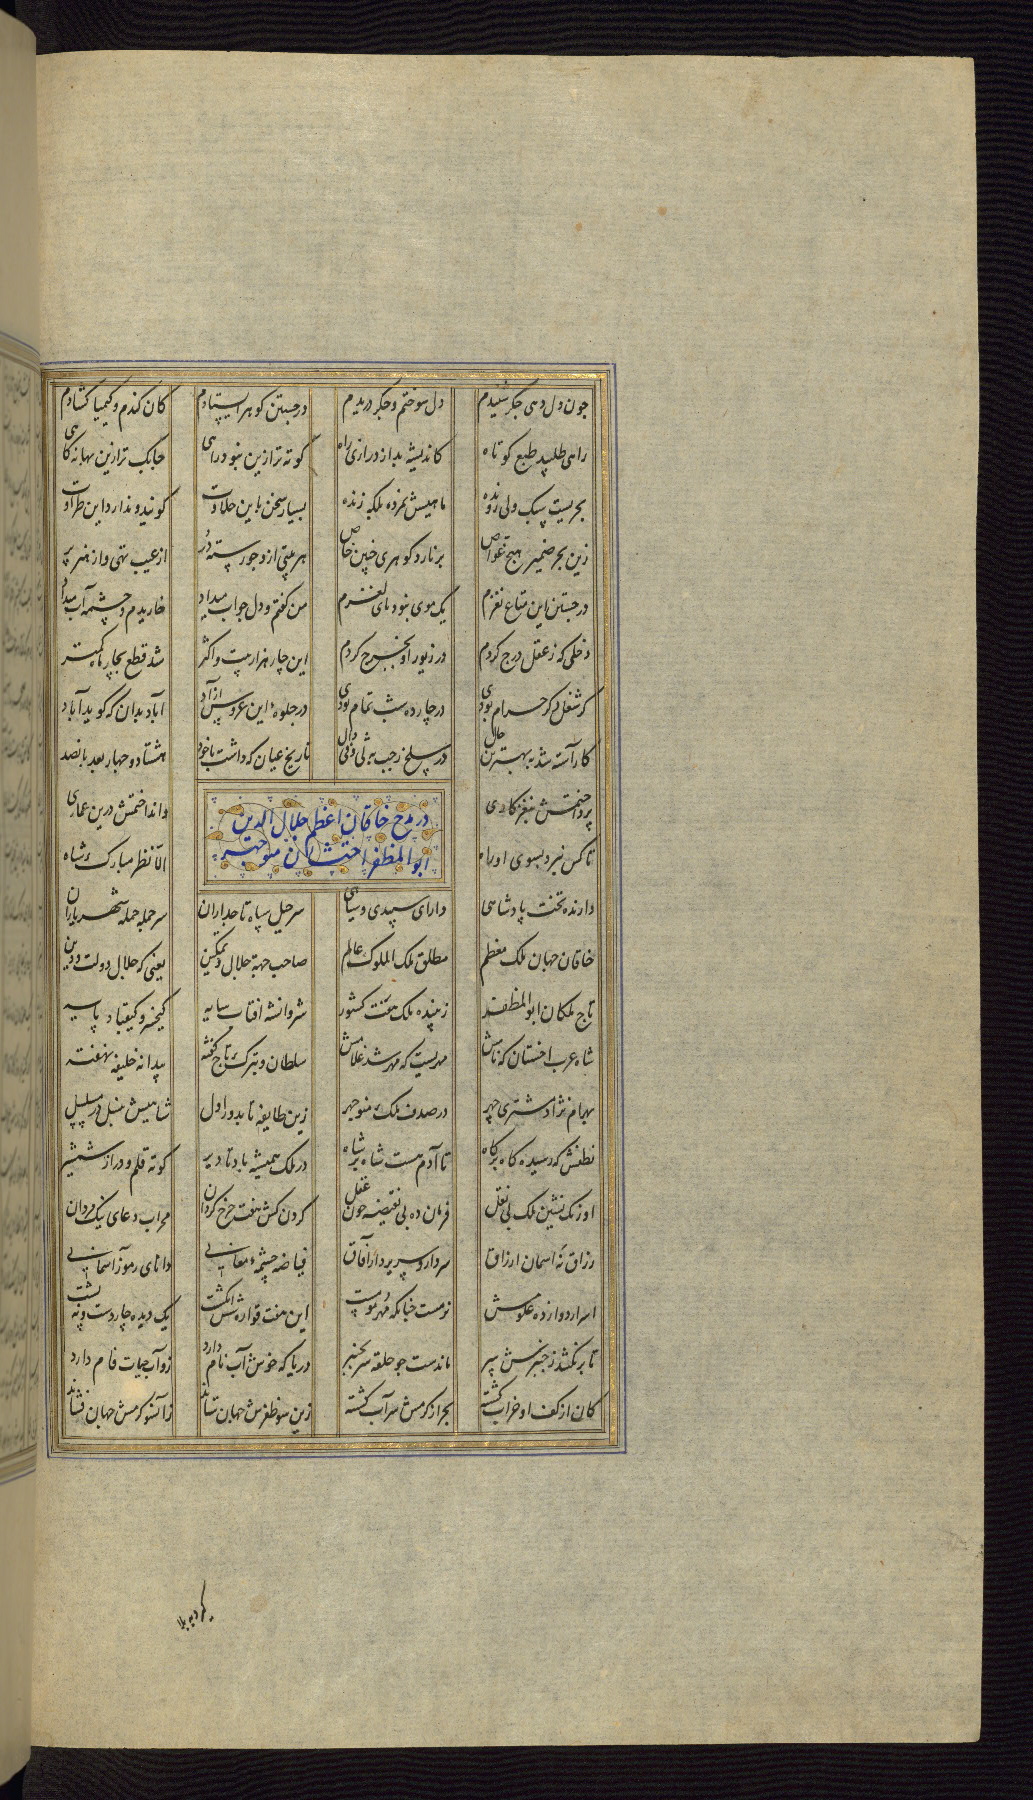 چون دل دهی جگر شنیدم دل سوختم و جگر دریدم در جستن گوهر ایستادم کان کندم و کیمیا گشادم
راهی طلبید طبع کوتاه کاندیشه بد از درازی راه کوته‌تر ازین نبود راهی چابک‌تر ازین بهانه‌گاهی
بحریست سبک ولی رونده ماهیش نمرده بلکه زنده بسیار سخن باین حلاوت گویند و ندارد این طراوت
زین بحر ضمیر هیچ غواص برنارد گوهری چنین خاص هر بیتی ازو چو رسته در از عیب تهی و از هنر پر
در جستن این متاع نغزم یک موی نبود پای لغزم من گفتم و دل جواب میداد خاریدم و چشمه آب میداد
دخلی که ز عقل درج کردم در زیور او بخرج کردم این چار هزار بیت و اکثر شد قطع بچار ماه کمتر
گر شغل دگر حرام بودی در چارده شب تمام بودی در جلوه این عروس آزاد آباد بدان که گوید آباد
کاراسته شد به بهترین حال در سلخ رجب به ثی و فی دال تاریخ عیان که داشت با خود هشتاد و چهار بعد پانصد
پرداختمش بنغز کاری وانداختمش درین عماری
تا کس نبرد بسوی او راه الا نظر مبارک شاه
در مدح خاقان اعظم جلال الدین
ابوالمظفر اختشان منوچهر
دارنده تخت پادشاهی دارای سپیدی و سیاهی سرخیل سپاه تاجداران سرجمله جمله شهریاران
خاقان جهان ملک معظم مطلق ملک الملوک عالم صاحب جهة جلال و تمکین یعنی که جلال دولت و دین
تاج ملکان ابوالمظفر زیبنده ملک هفت کشور شروانشه آفتاب سایه کیخسرو کیقباد پایه
شاه عرب اختسان که نامش مهریست که مهر شد غلامش سلطان و بترک تاج گفته پیدا نه خلیفه نهفته
بهرام نژاد مشتری چهر در صدف ملک منوچهر زین طایفه تا بدور اول شاهیش بنسل در مسلسل
نطفش که رسیده گاه برگاه تا آدم هست شاه بر شاه در ملک همیشه باد تا دیر کوته قلم و دراز شمشیر
اورنگ نشین ملک بی نقل فرمان ده بی نقیصه چون عقل گردن کش هفت چرخ گردان محراب دعای نیک مردان
رزاق نه آسمان ارزاق سردار و سریردار آفاق فیاضه چشمه معانی دانای رموز آسمانی
اسرار دوازده علومش نرمست چنانکه مهر مومست این هفت قواره شش انگشت یک دیده چاردست و نه پشت
تا برنکشد ز چنبرش سر ماندست چو حلقه سر بچنبر دریا که خوش آب نام دارد زو آب حیات وام دارد
کان از کف او خراب گشته بحر از کرمش سراب گشته زین سو ظفرش جهان ستاند زانسو کرمش جهان فشاند